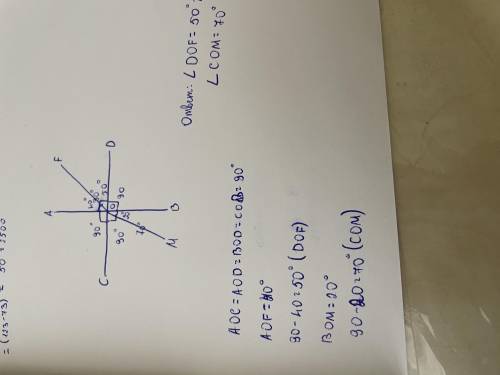 = (123-73)
F
A
D
40°
50°
90
90°
O
B
90°
20°
70°
M
C
AOC = AOD = BOD = COB = 90°
AOF = 40°
90 - 40 = 50° (DOF)
BOM = 20°
90 - 20 = 70° (COM)
Ответ: ∠ DOF = 50°;
∠ COM = 70°